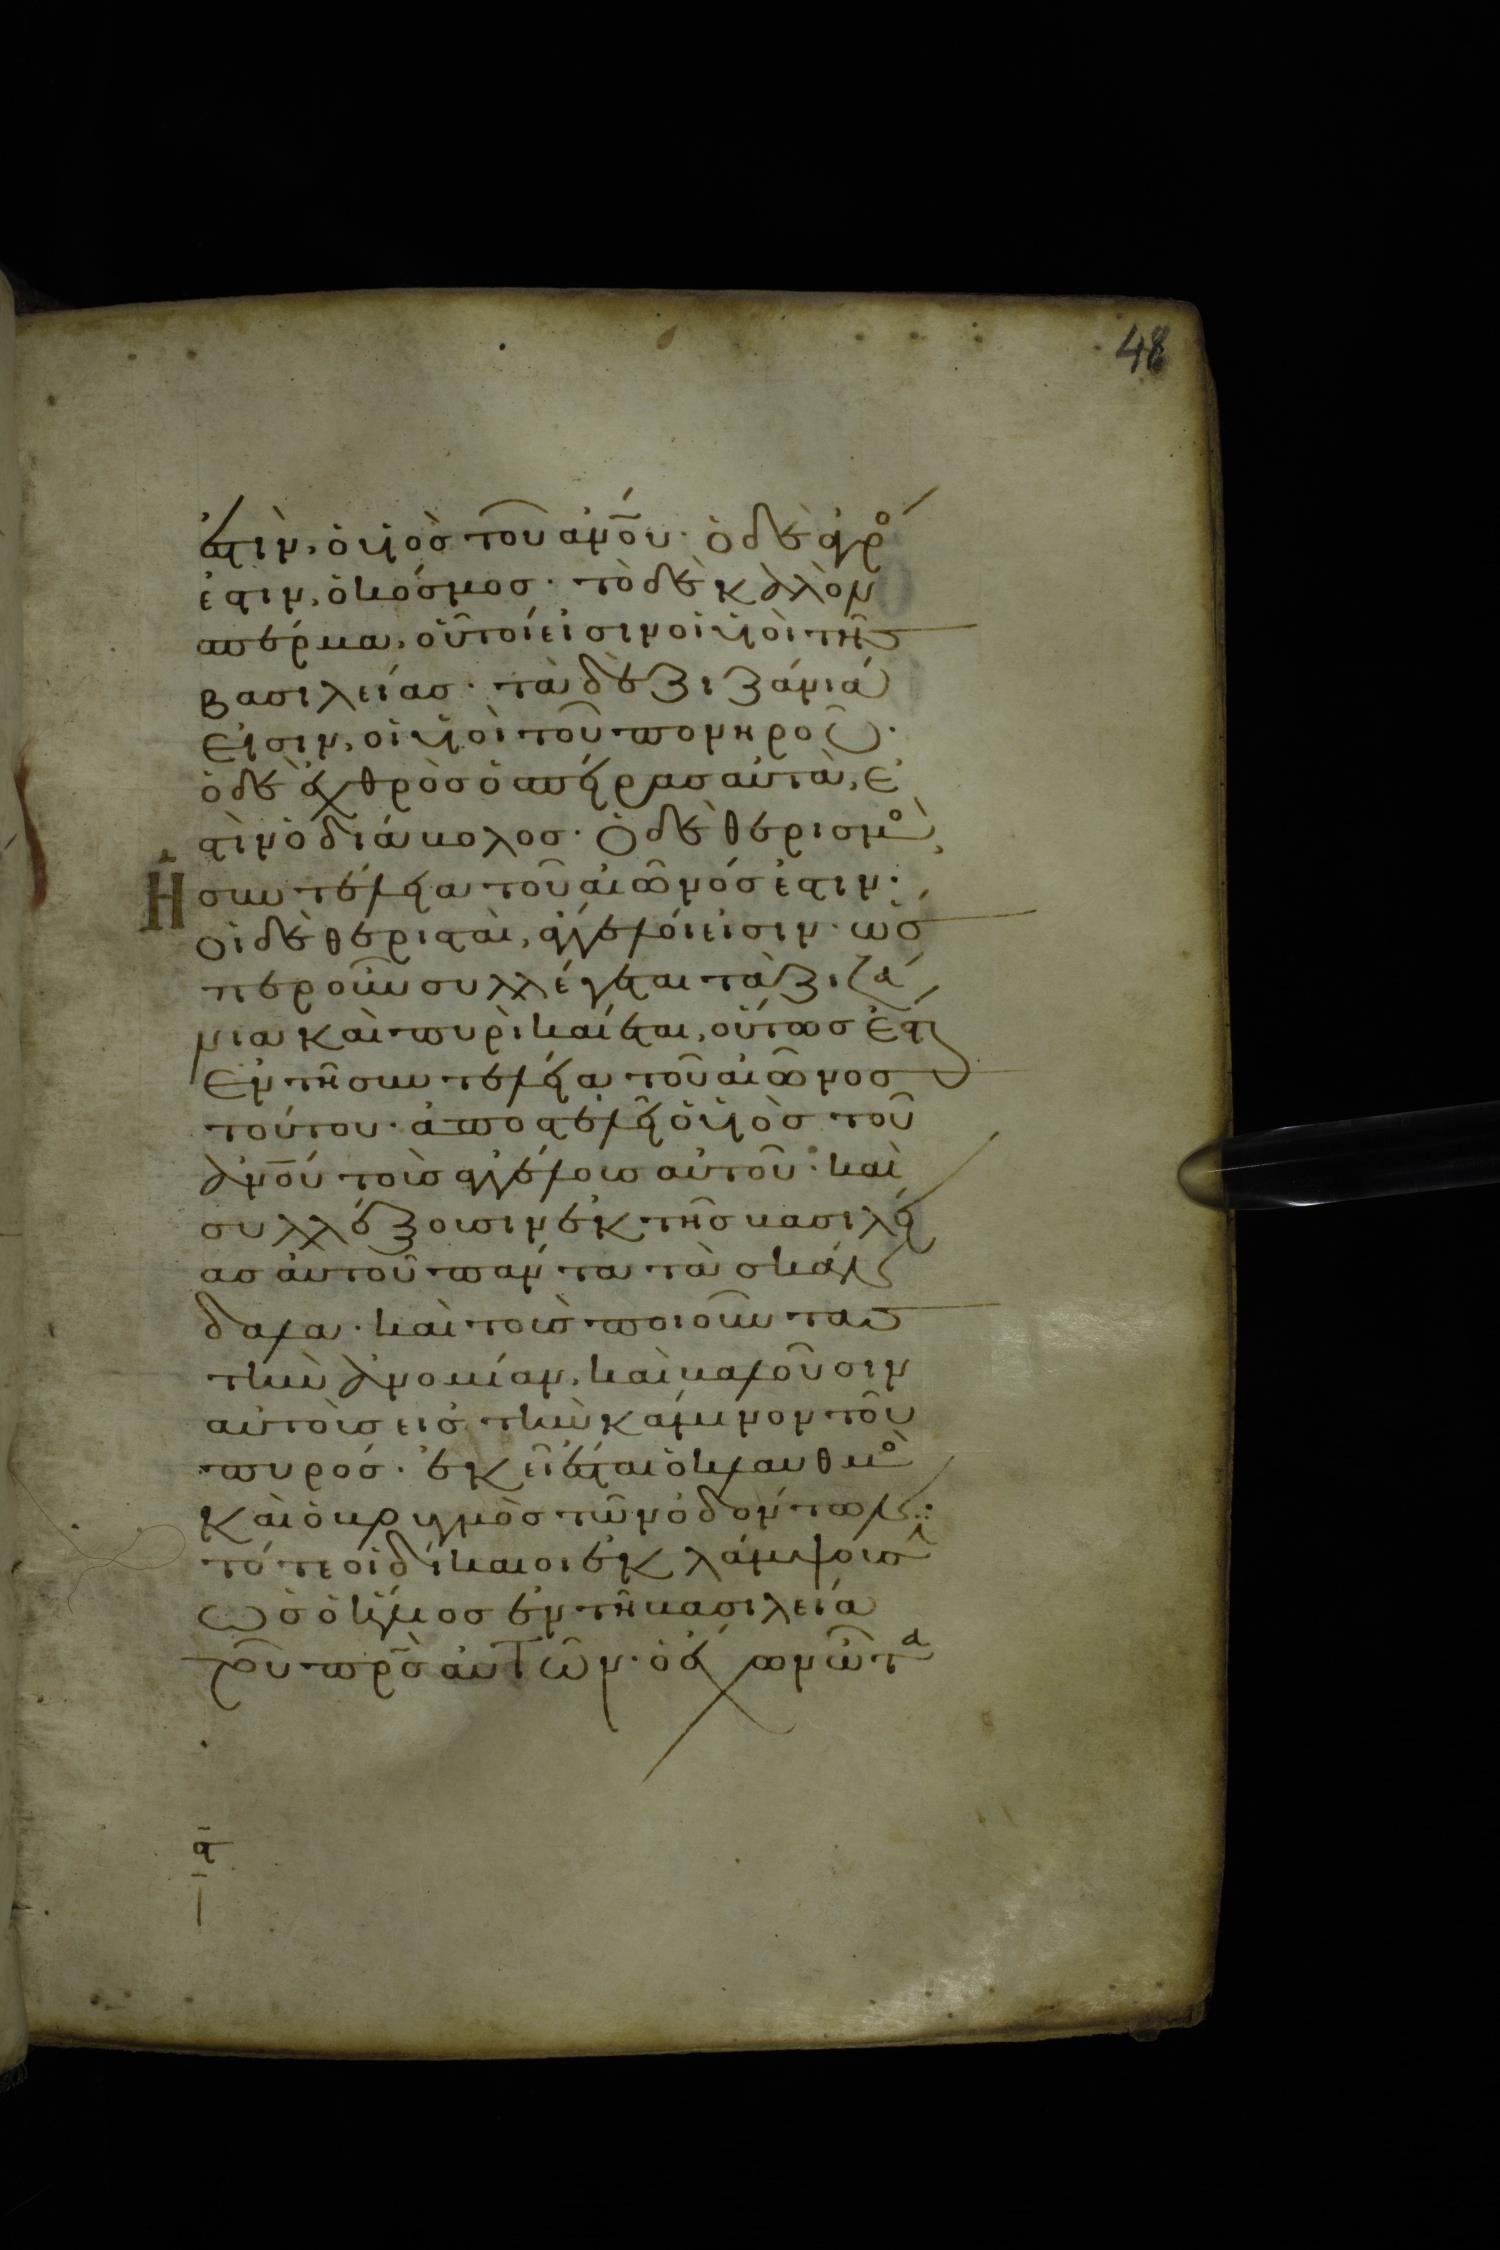 48
ἐστὶν, ὁ υἱὸσ τοῦ ἀν̅όυ· ὁ δὲ ἀγρο
ἐστιν, ὁ κόσμοσ· τὸ δὲ καλὸν
σπέρμα, οὗτοί εἰσιν οἱ υἱοὶ τῆσ
βασιλείασ· τὰ δὲ ζιζάνιά
εἰσιν, οἱ υἱοὶ τοῦ πονηροῦ·
ὁ δὲ ἐχθρὸσ ὁ σπείρασ αὐτὰ, ἐ
στὶν ὁ διάβολοσ· ὁ δὲ θερισμο,
Ἡ συντέλεια τοῦ αἰῶνόσ ἐστιν·
οἱ δὲ θερισταὶ, ἄγγελοι εἰσιν· ὥσ
περ οὖν συλλέγεται τὰ ζιζά
νια καὶ πυρὶ καίεται, οὕτωσ ἔσται
ἐν τῆ συντελεία τοῦ αἰῶνοσ
τούτου· ἀποστελεῖ ὁ υἱὸσ τοῦ
ἀν̅όυ τοὺσ ἀγγέλουσ αὐτοῦ· καὶ
συλλέξουσιν ἐκ τῆσ βασιλεί
ασ αὐτοῦ πάντα τὰ σκάν
δαλα· καὶ τοὺσ ποιοῦντασ
τὴν ἀνομίαν, καὶ βαλοῦσιν
αὐτοὺσ εἰσ τὴν κάμινον τοῦ
πυρόσ· ἐκεῖ ἔσται ὁ κλαυθμο
καὶ ὁ βρυγμὸσ τῶν ὀδόντων:
τότε οἱ δίκαιοι ἐκλάμψουσι
ὡσ ὁ ἥλιοσ ἐν τῆ βασιλεία
τοῦ πρ̅σ αὐτῶν· ὁ ἔχων ὦτα